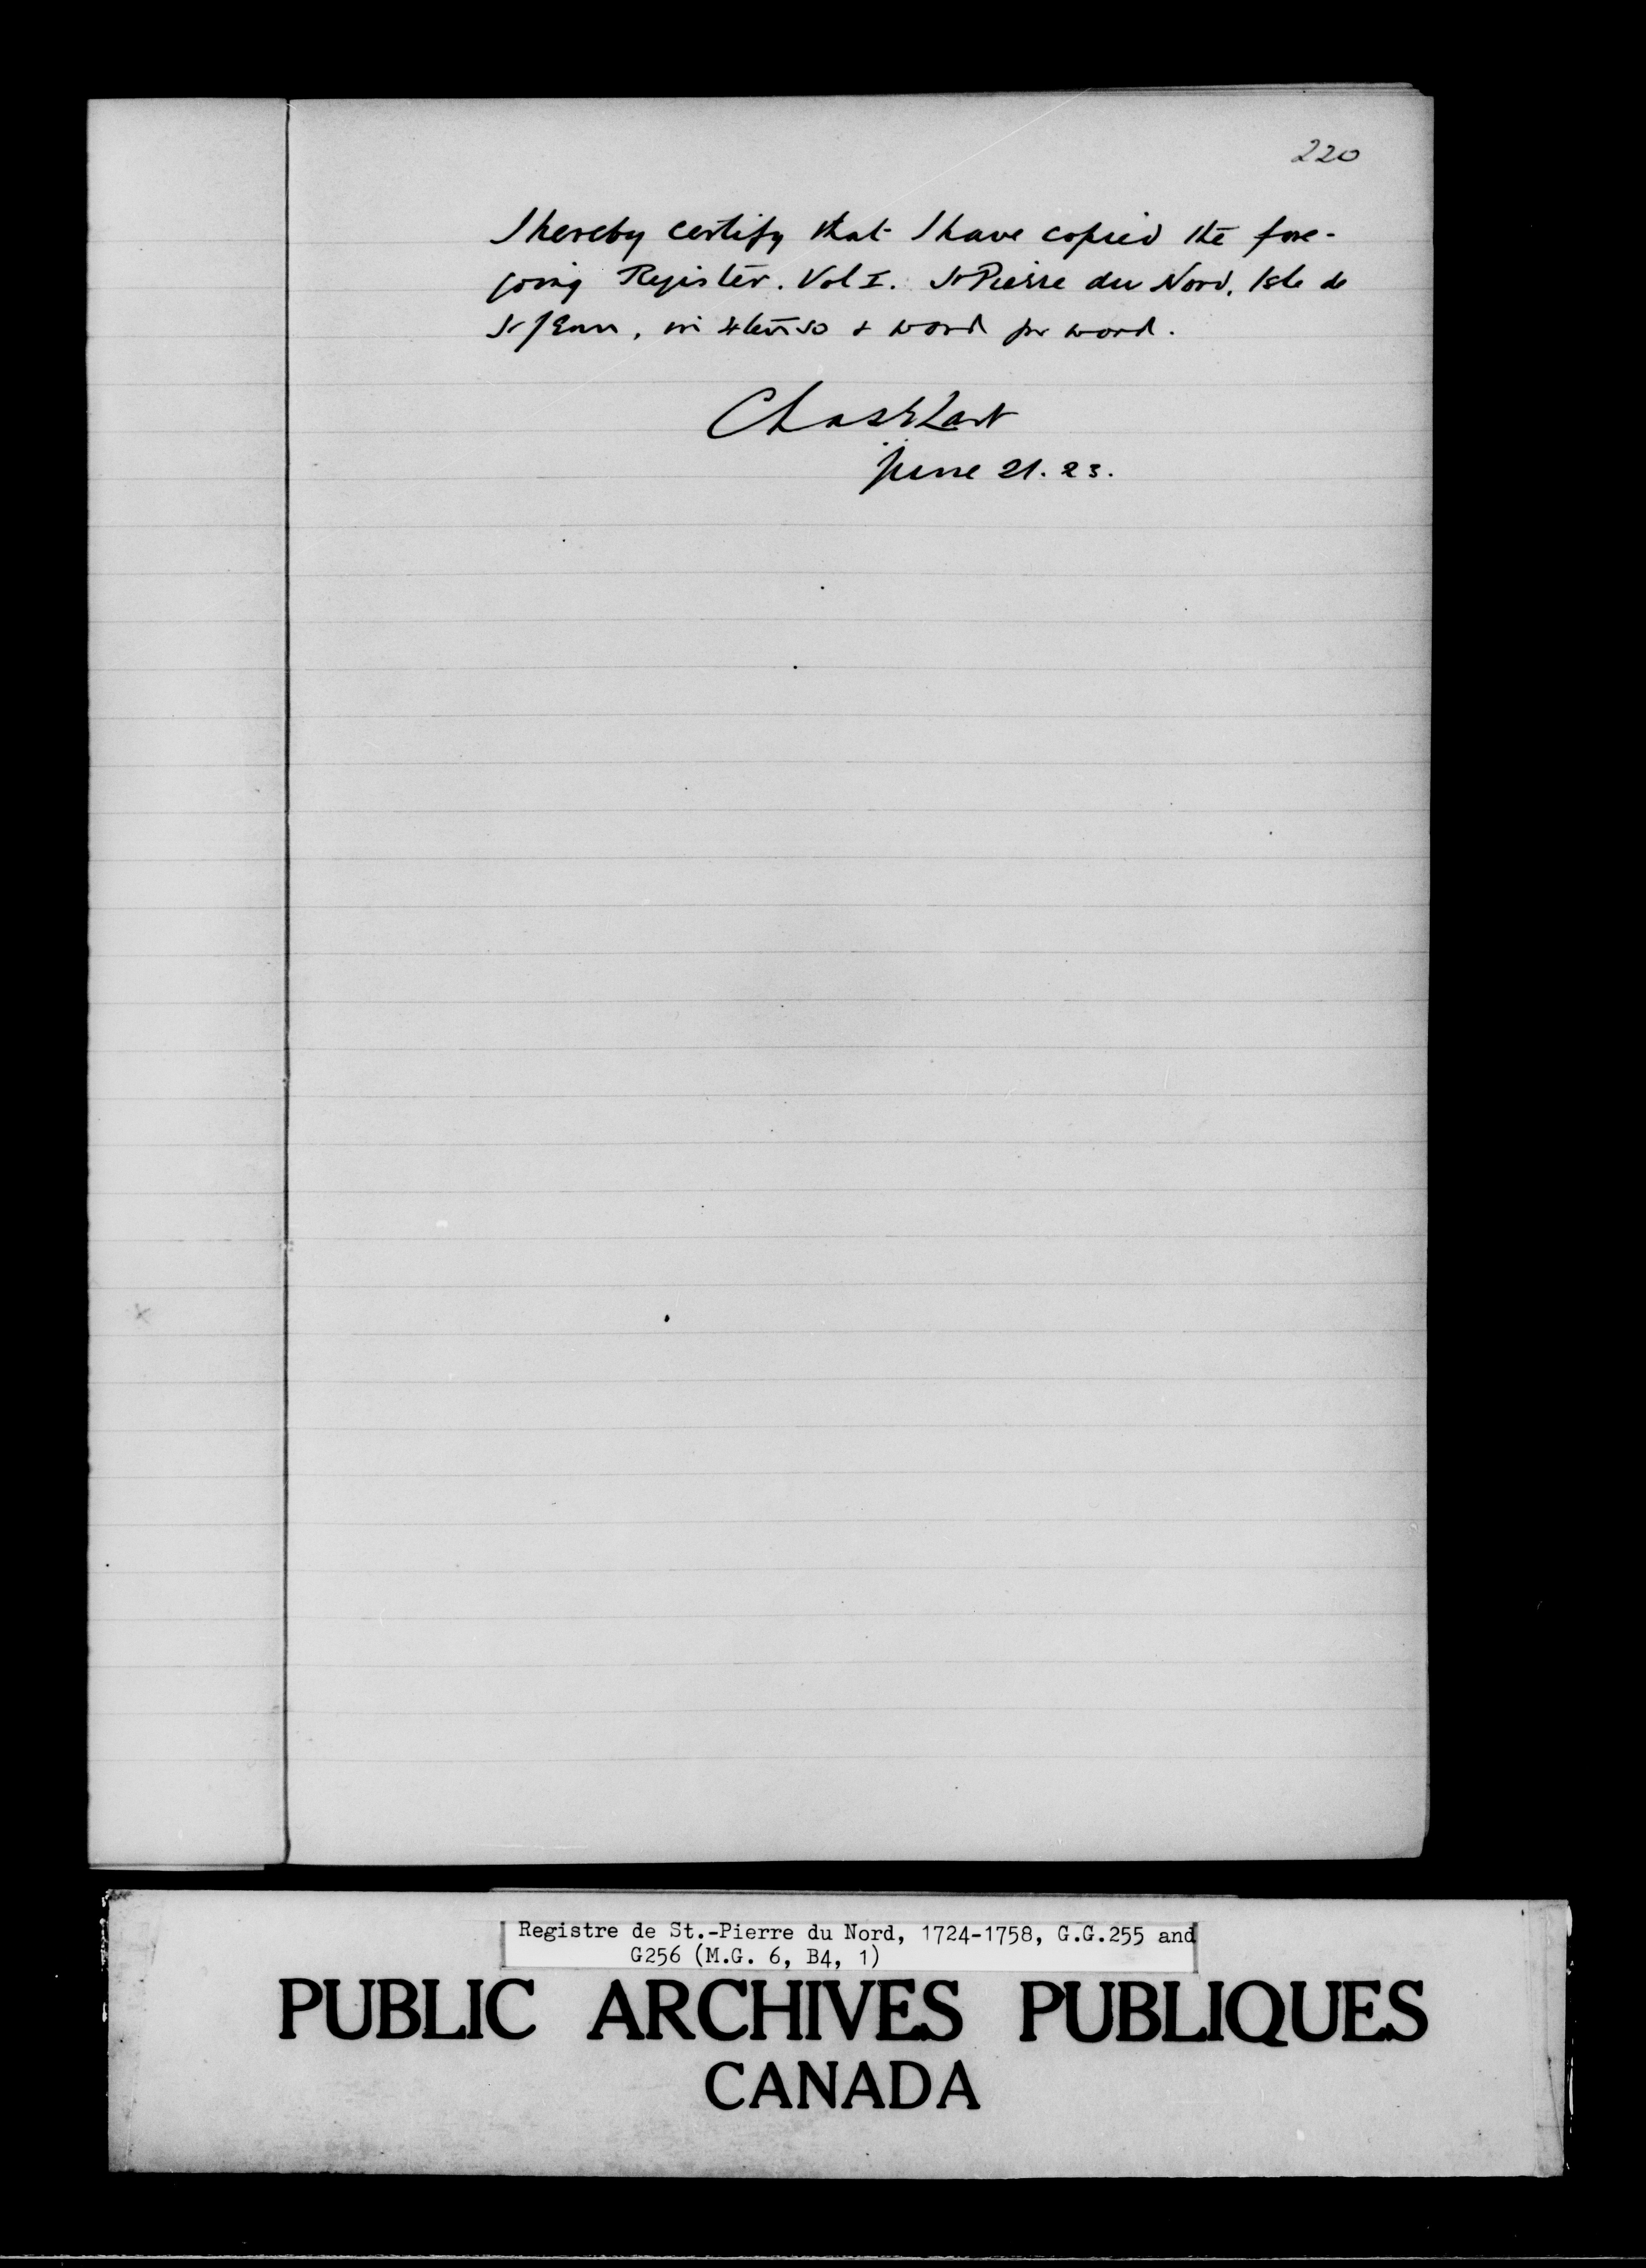 220
I hereby certify that I have copied the fore-
going Register. Vol I. St Pierre du Nord, Isle de
St Jean, in extenso & word for word.
Chas E Lart
June 21. 23.
Registre de St.-Pierre du Nord, 1724-1758, G.G.255 and
G256 (M.G. 6, B4, 1)
PUBLIC ARCHIVES PUBLIQUES
CANADA